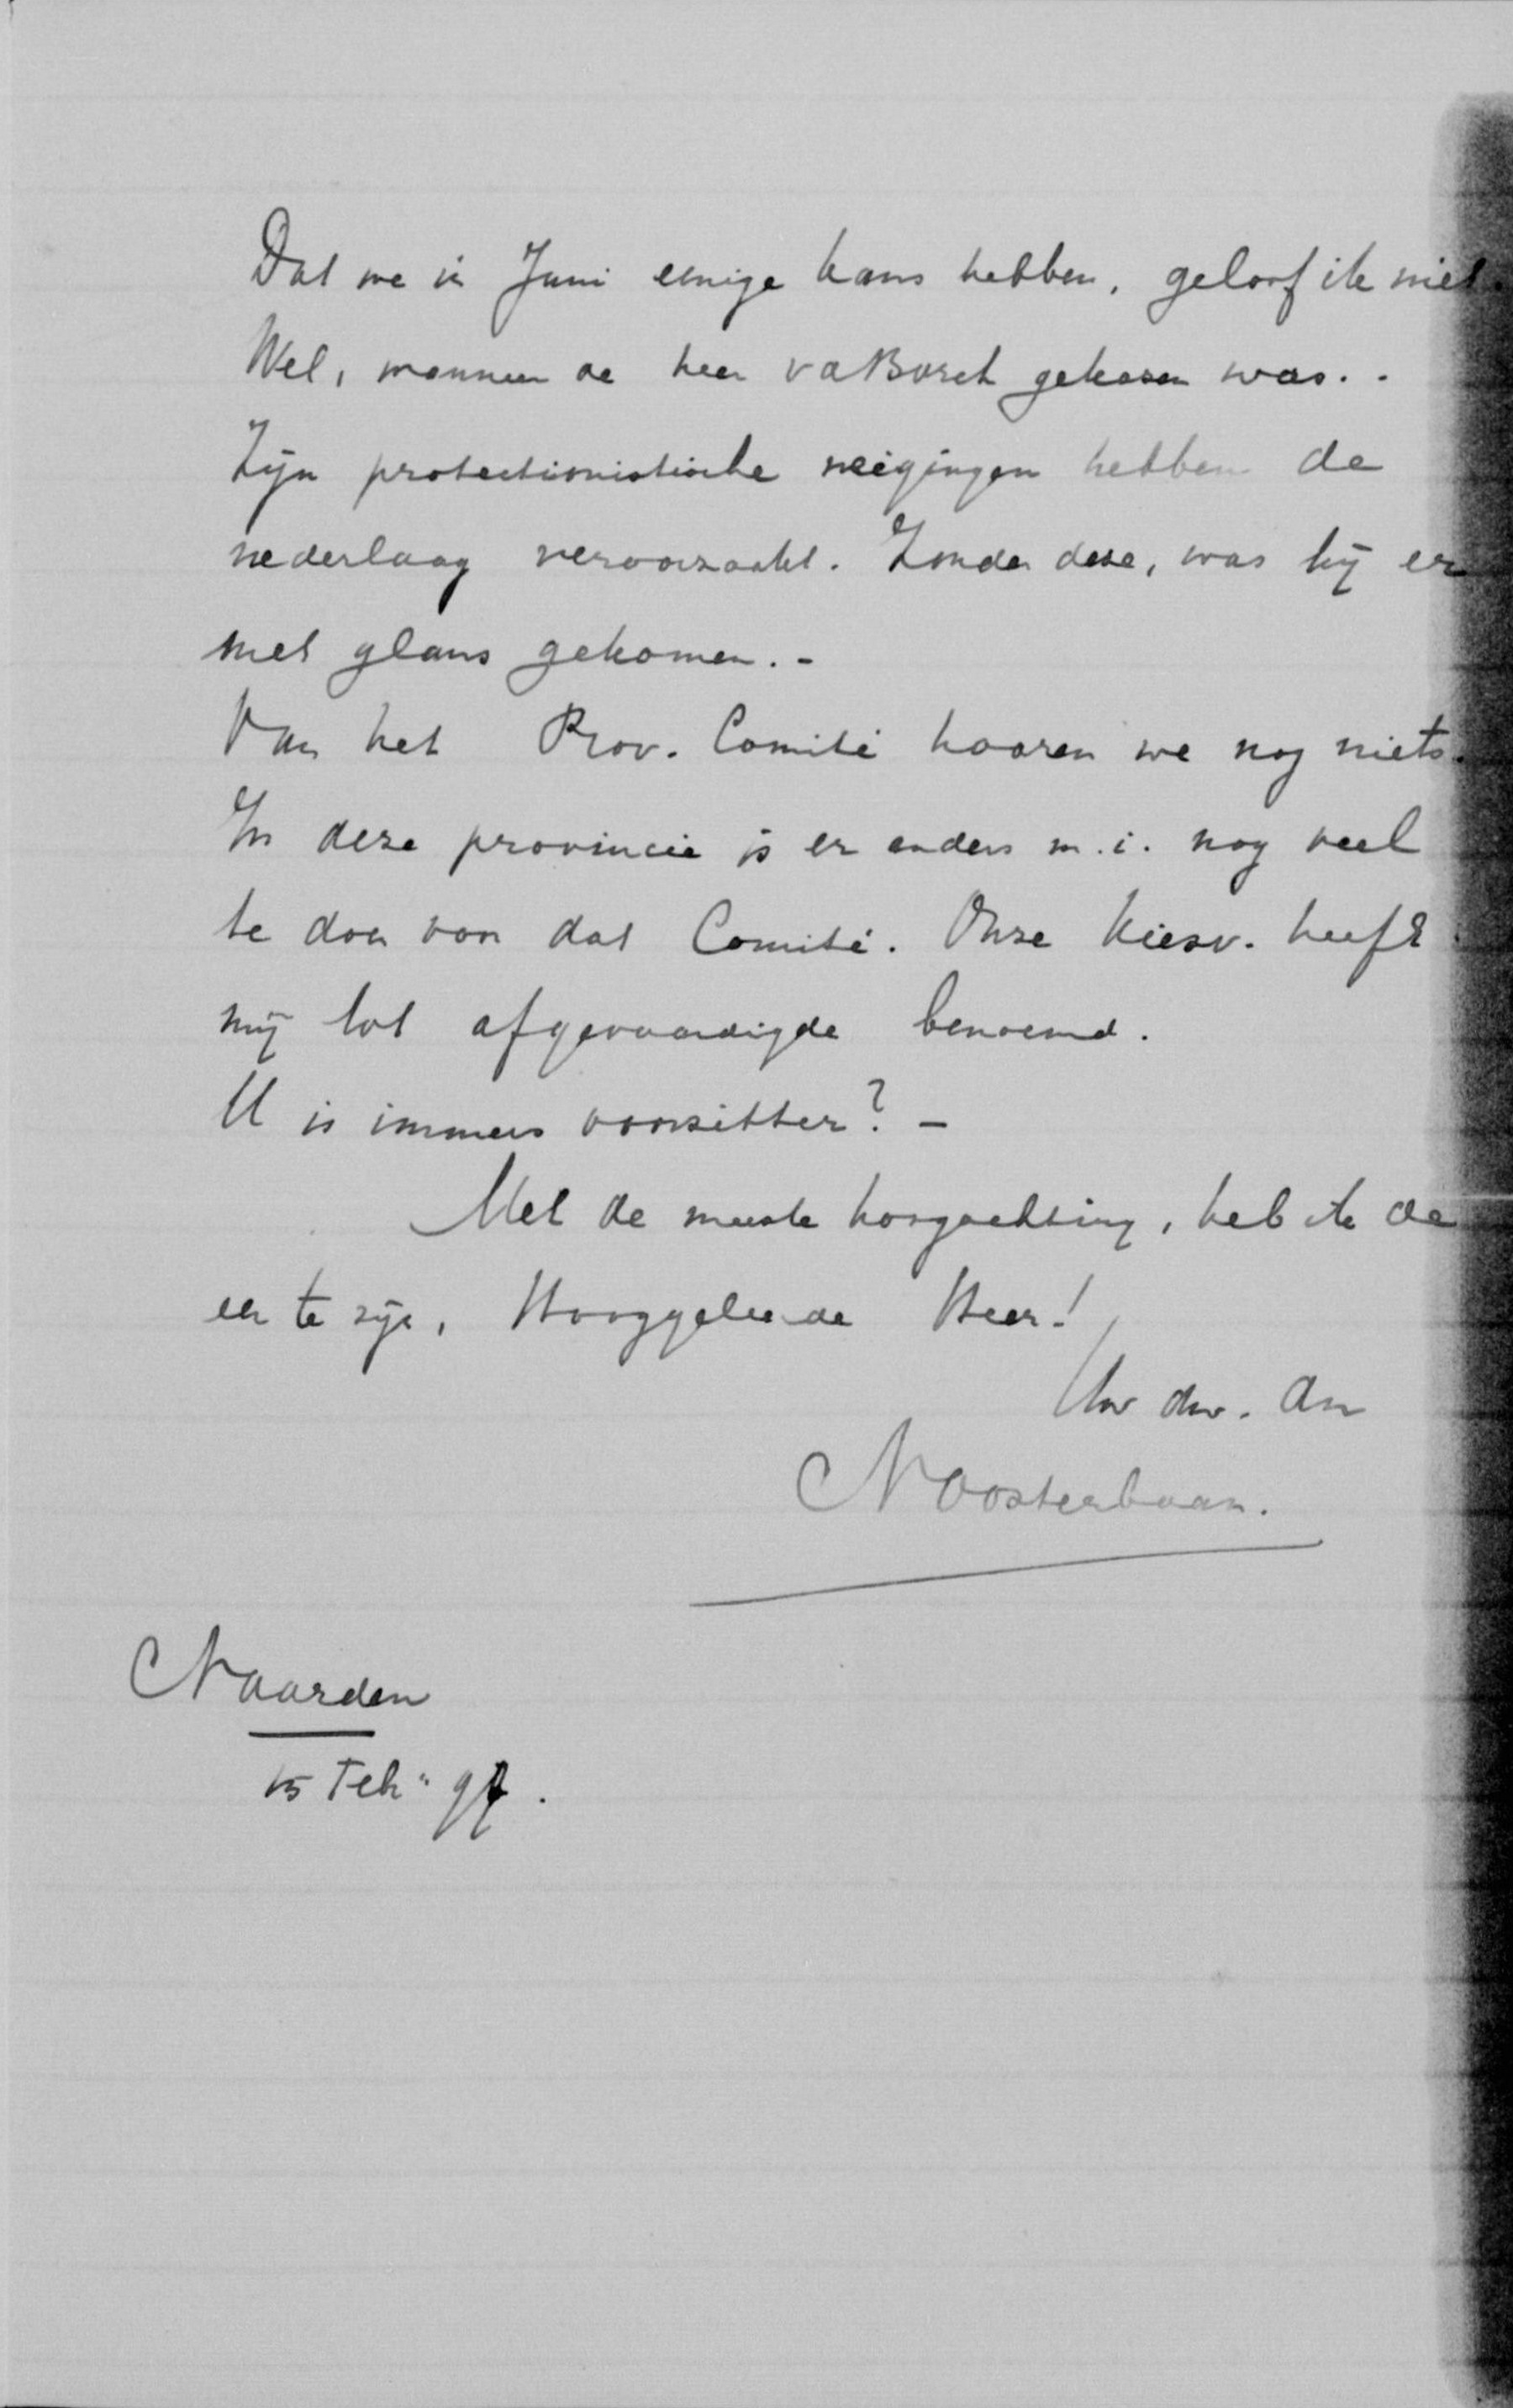 Dat we in Juni eenige kans hebben, geloof ik niet.
Wel, wanneer de heer vd Borch gekozen was. -
Zijn protectionistische neigingen hebben de
nederlaag veroorzaakt. Zonder deze, was hij er
met glans gekomen. -
Van het Prov. Comité hooren we nog niets.
In deze provincie is er anders m.i. nog veel
te doen voor dat Comité. Onze Kiesv. heeft
mij tot afgevaardigde benoemd.
U is immers voorzitter? -
Met de meeste hoogachting, heb ik de
eer te zijn, Hooggeleerde Heer!
Uw dw. dn
N Oosterbaan.
Naarden
15 Feb: 97.